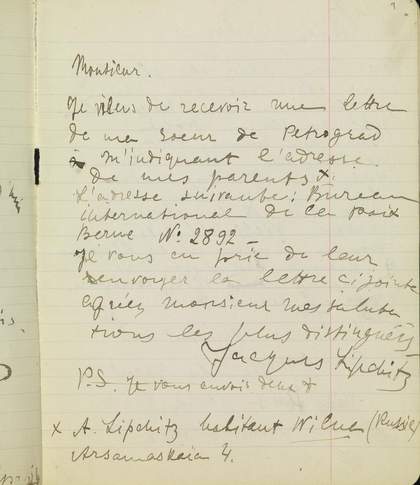 Monsieur.
Je viens de recevoir une lettre
de ma soeur de Petrograd
m'indiquant l'adresse
de mes parents x.
L'adresse suivante: Bureau
international de la paix
Berne No. 2892 –
Je vous en prie de leur
envoyer la lettre ci jointe
agréez monsieur mes saluta
tions les plus distinguées
Jacques Lipchitz
P.S. Je vous envois deux
x A. Lipchitz habitant Wilna (Russie)
Arsamaskaia 4.